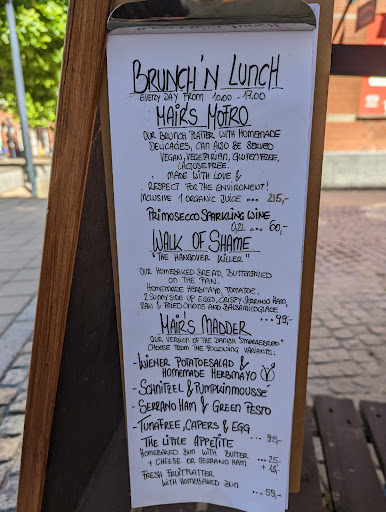 BRUNCH'N LUNCH
EVERY DAY FROM 10.00 - 17.00
MAIRS MOFRO
OUR BRUNCH PLATTER WITH HOMEMADE
DELICACIES, CAN ALSO BE SERVED
VEGAN, VEGETARIAN, GLUTENFREE,
LACTOSEFREE.
MADE WITH LOVE &
RESPECT FOR THE ENVIROMENT!
INCLUSIVE 1 ORGANIC JUICE ... 215,-
PRIMOSECCO SPARKLING WINE
0,2L ... 60,-
WALK OF SHAME
"THE HANGOVER KILLER"
OUR HOMEBAKED BREAD, BUTTERFRIED
ON THE PAN.
HOMEMADE HERBMAYO, TOMATOE,
2 SUNNY SIDE UP EGGS, CRISPY SERRANO HAM,
RAW & FRIED ONIONS AND BALSAMICOGLACE
... 99,-
MAIR'S MADDER
OUR VERSION OF THE DANISH "SMØRREBRØD"
CHOOSE FROM THE FOLLOWING VARIANTS:
- WIENER POTATOESALAD &
HOMEMADE HERBMAYO
- SCHNITZEL & PUMPKINMOUSSE
- SERRANO HAM & GREEN PESTO
- TUNAFREE, CAPERS & EGG
... 95,-
THE LITTLE APPETITE
HOMEBAKED BUN WITH BUTTER ... 25,-
+ CHEESE OR SERRANO HAM
FRESH FRUITPLATTER
WITH HOMEBAKED BUN
... 59,-